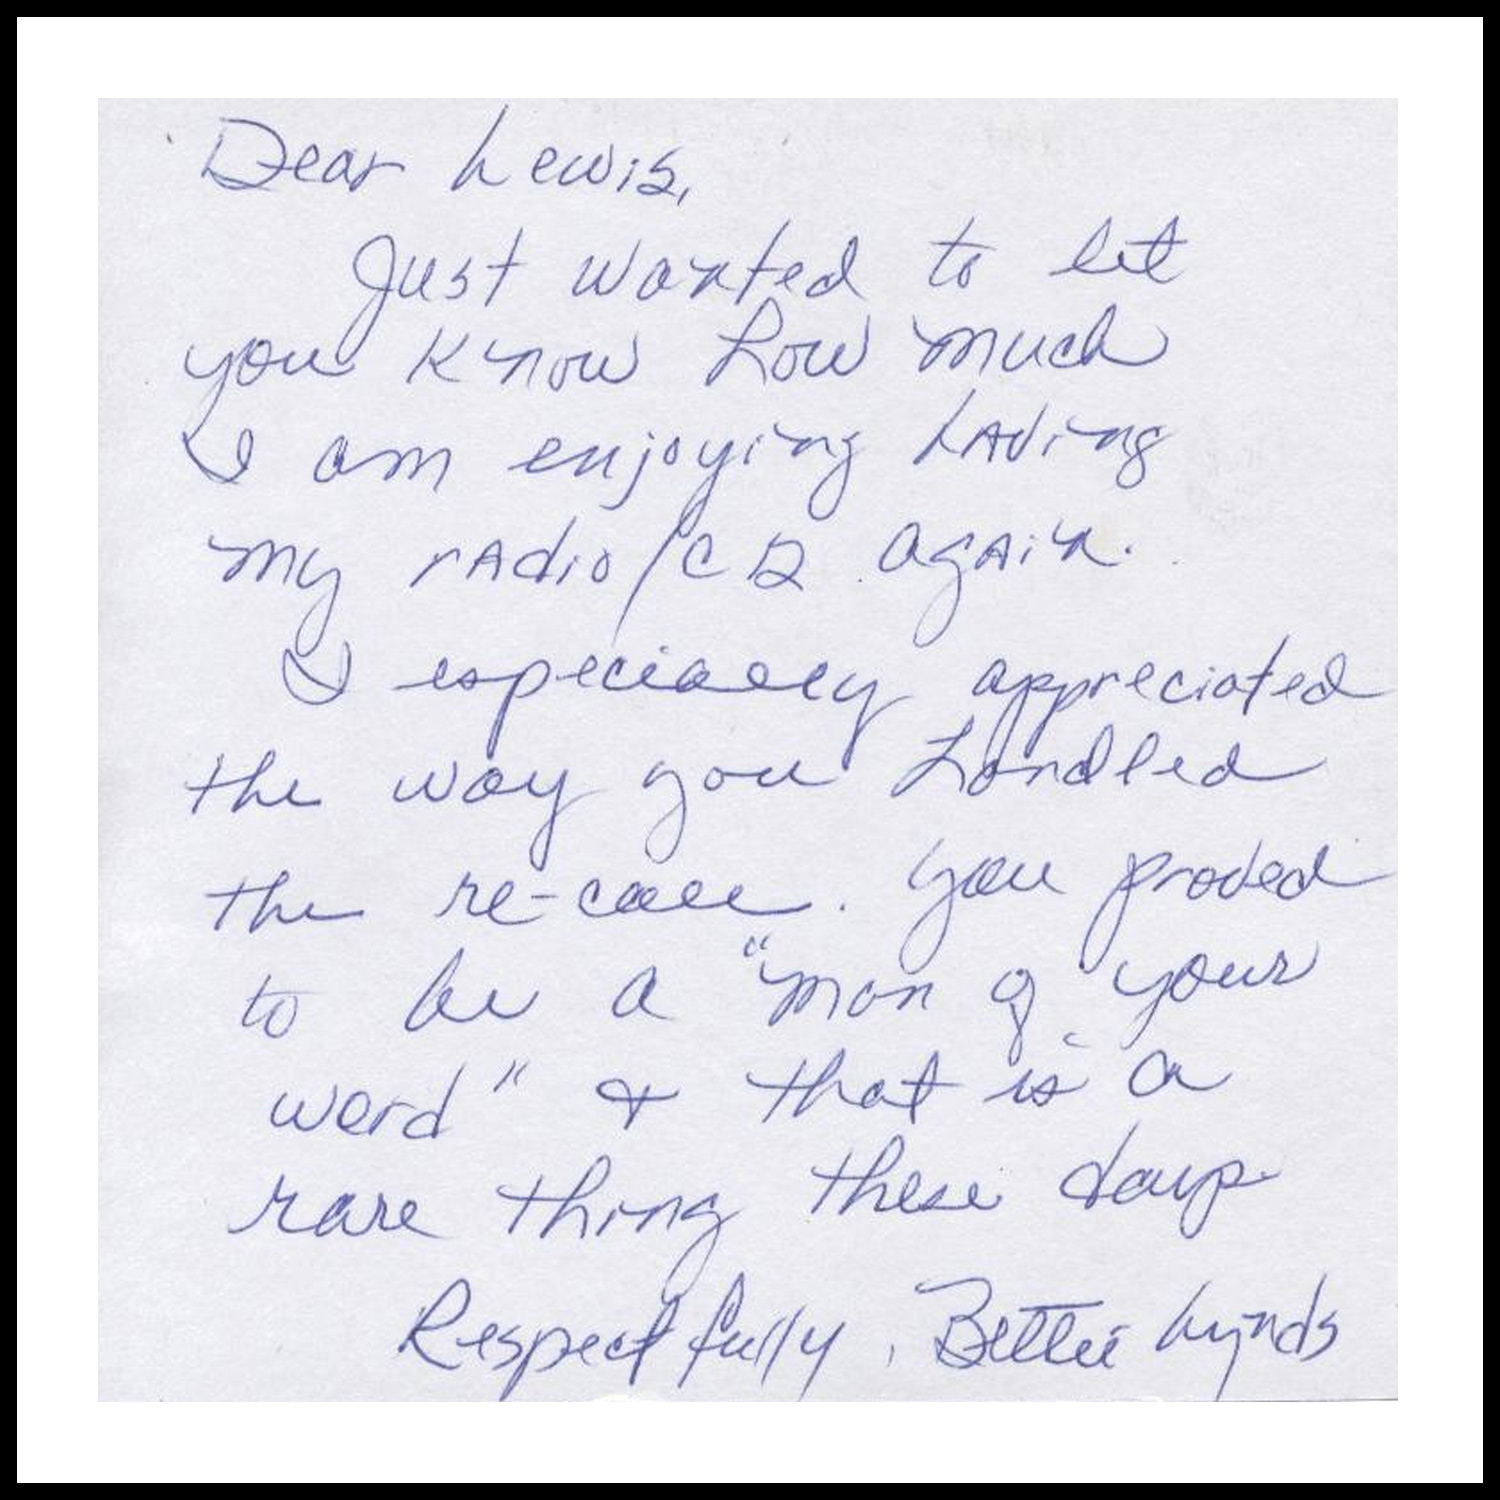 Dear Lewis,
Just wanted to let
you know how much
I am enjoying having
my radio/CD again.
I especially appreciated
the way you handled
the re-call. You proved
to be a "man of your
word" & that is a
rare thing these days.
Respectfully, Bettie Lynds